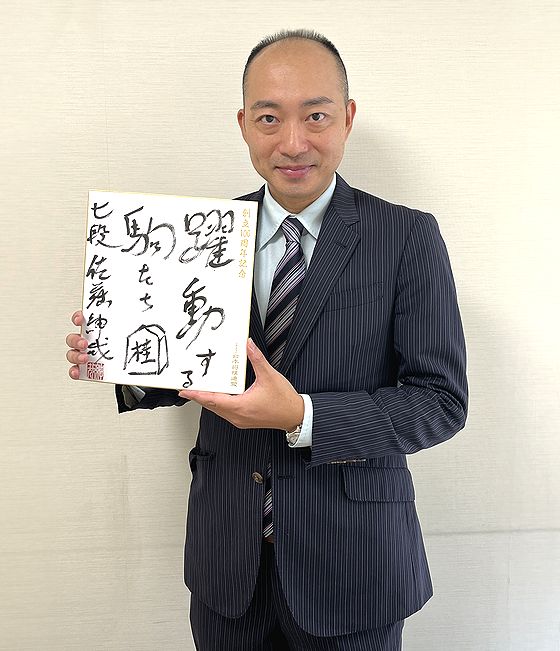 創立100周年記念
日本将棋連盟
躍動する
駒たち
桂
七段 佐藤紳哉